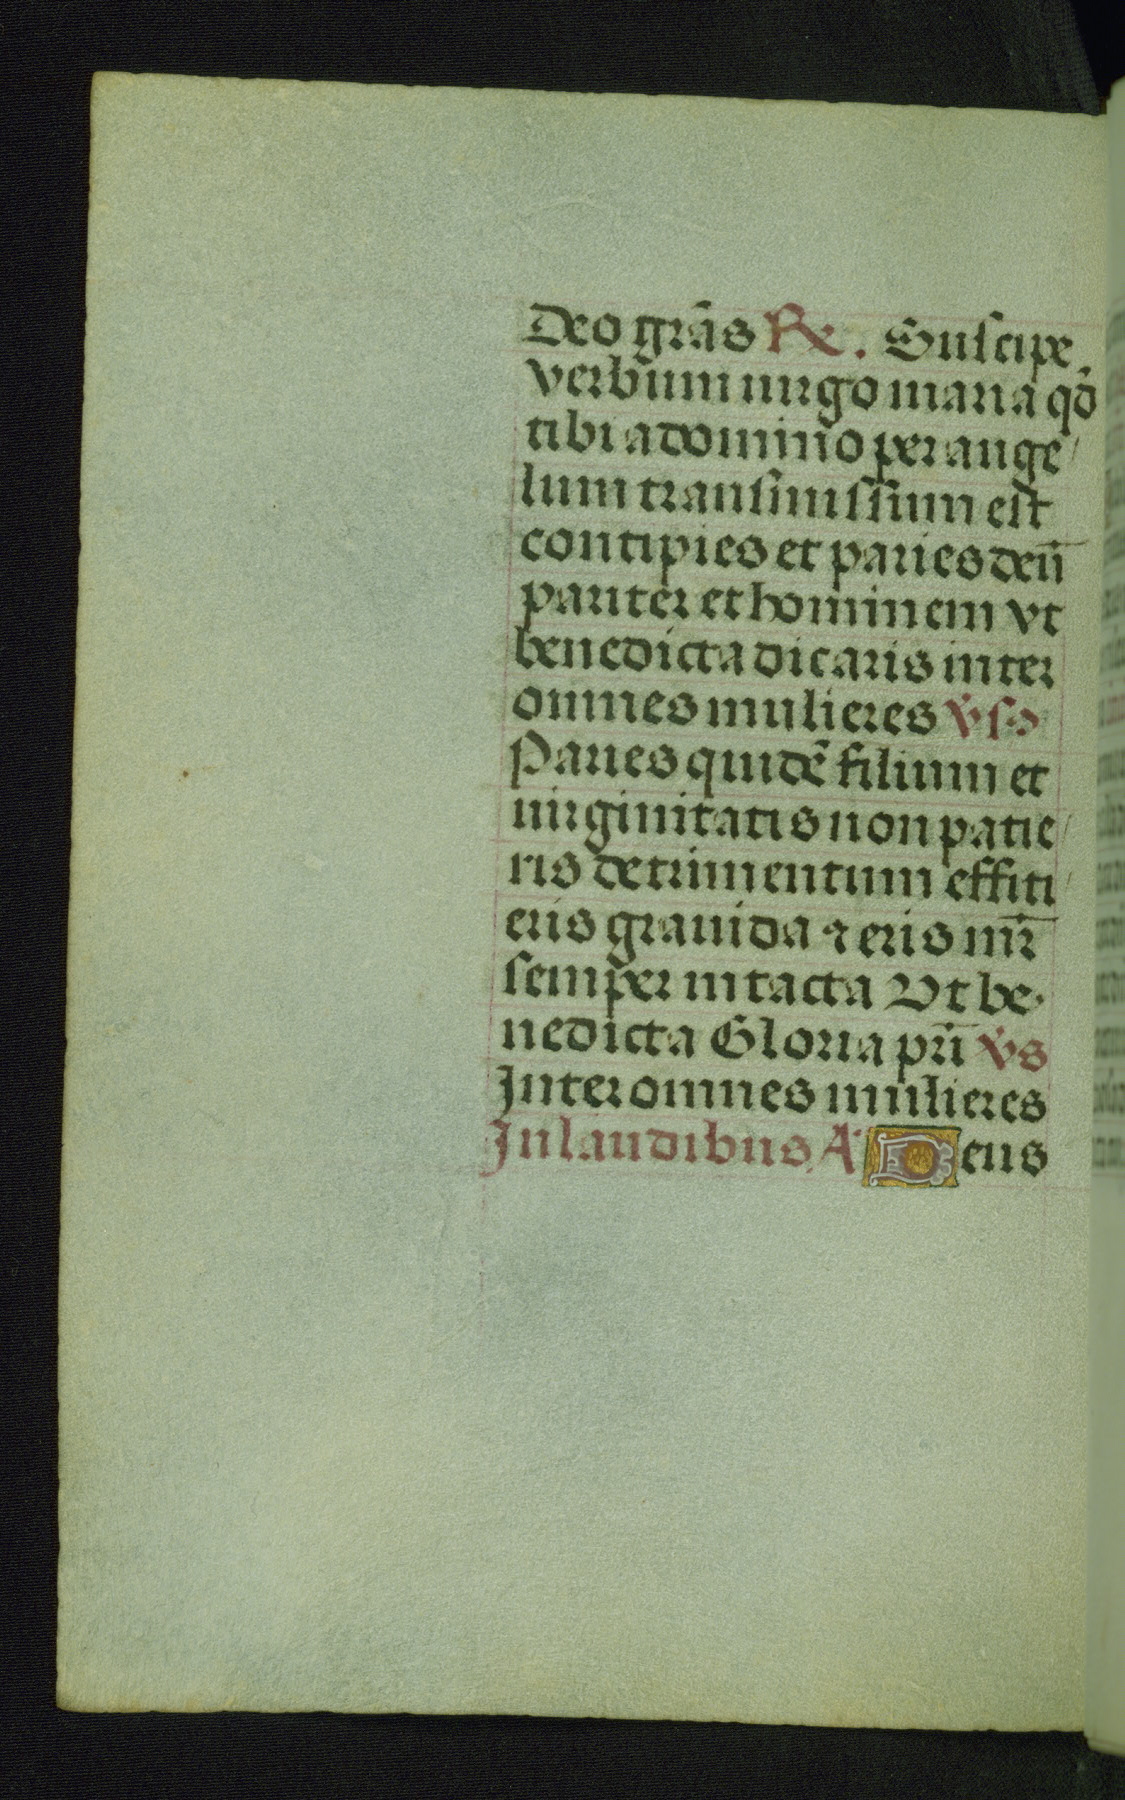 Deo grãs Re. Suscipe
verbum uirgo maria qđ
tibi a domino per ange/
lum transmissum est
contipies et paries deū
pariter et hominem vt
benedicta dicaris inter
omnes mulieres v̊so
Paries quidē filium et
uirginitatis non patie/
ris detrimentum effiti/
eris grauida ⁊ eris mr̄
semper intacta Vt be·
nedicta Gloria pr̄i v̊s
Inter omnes mulieres
In laudibus. A' Deus